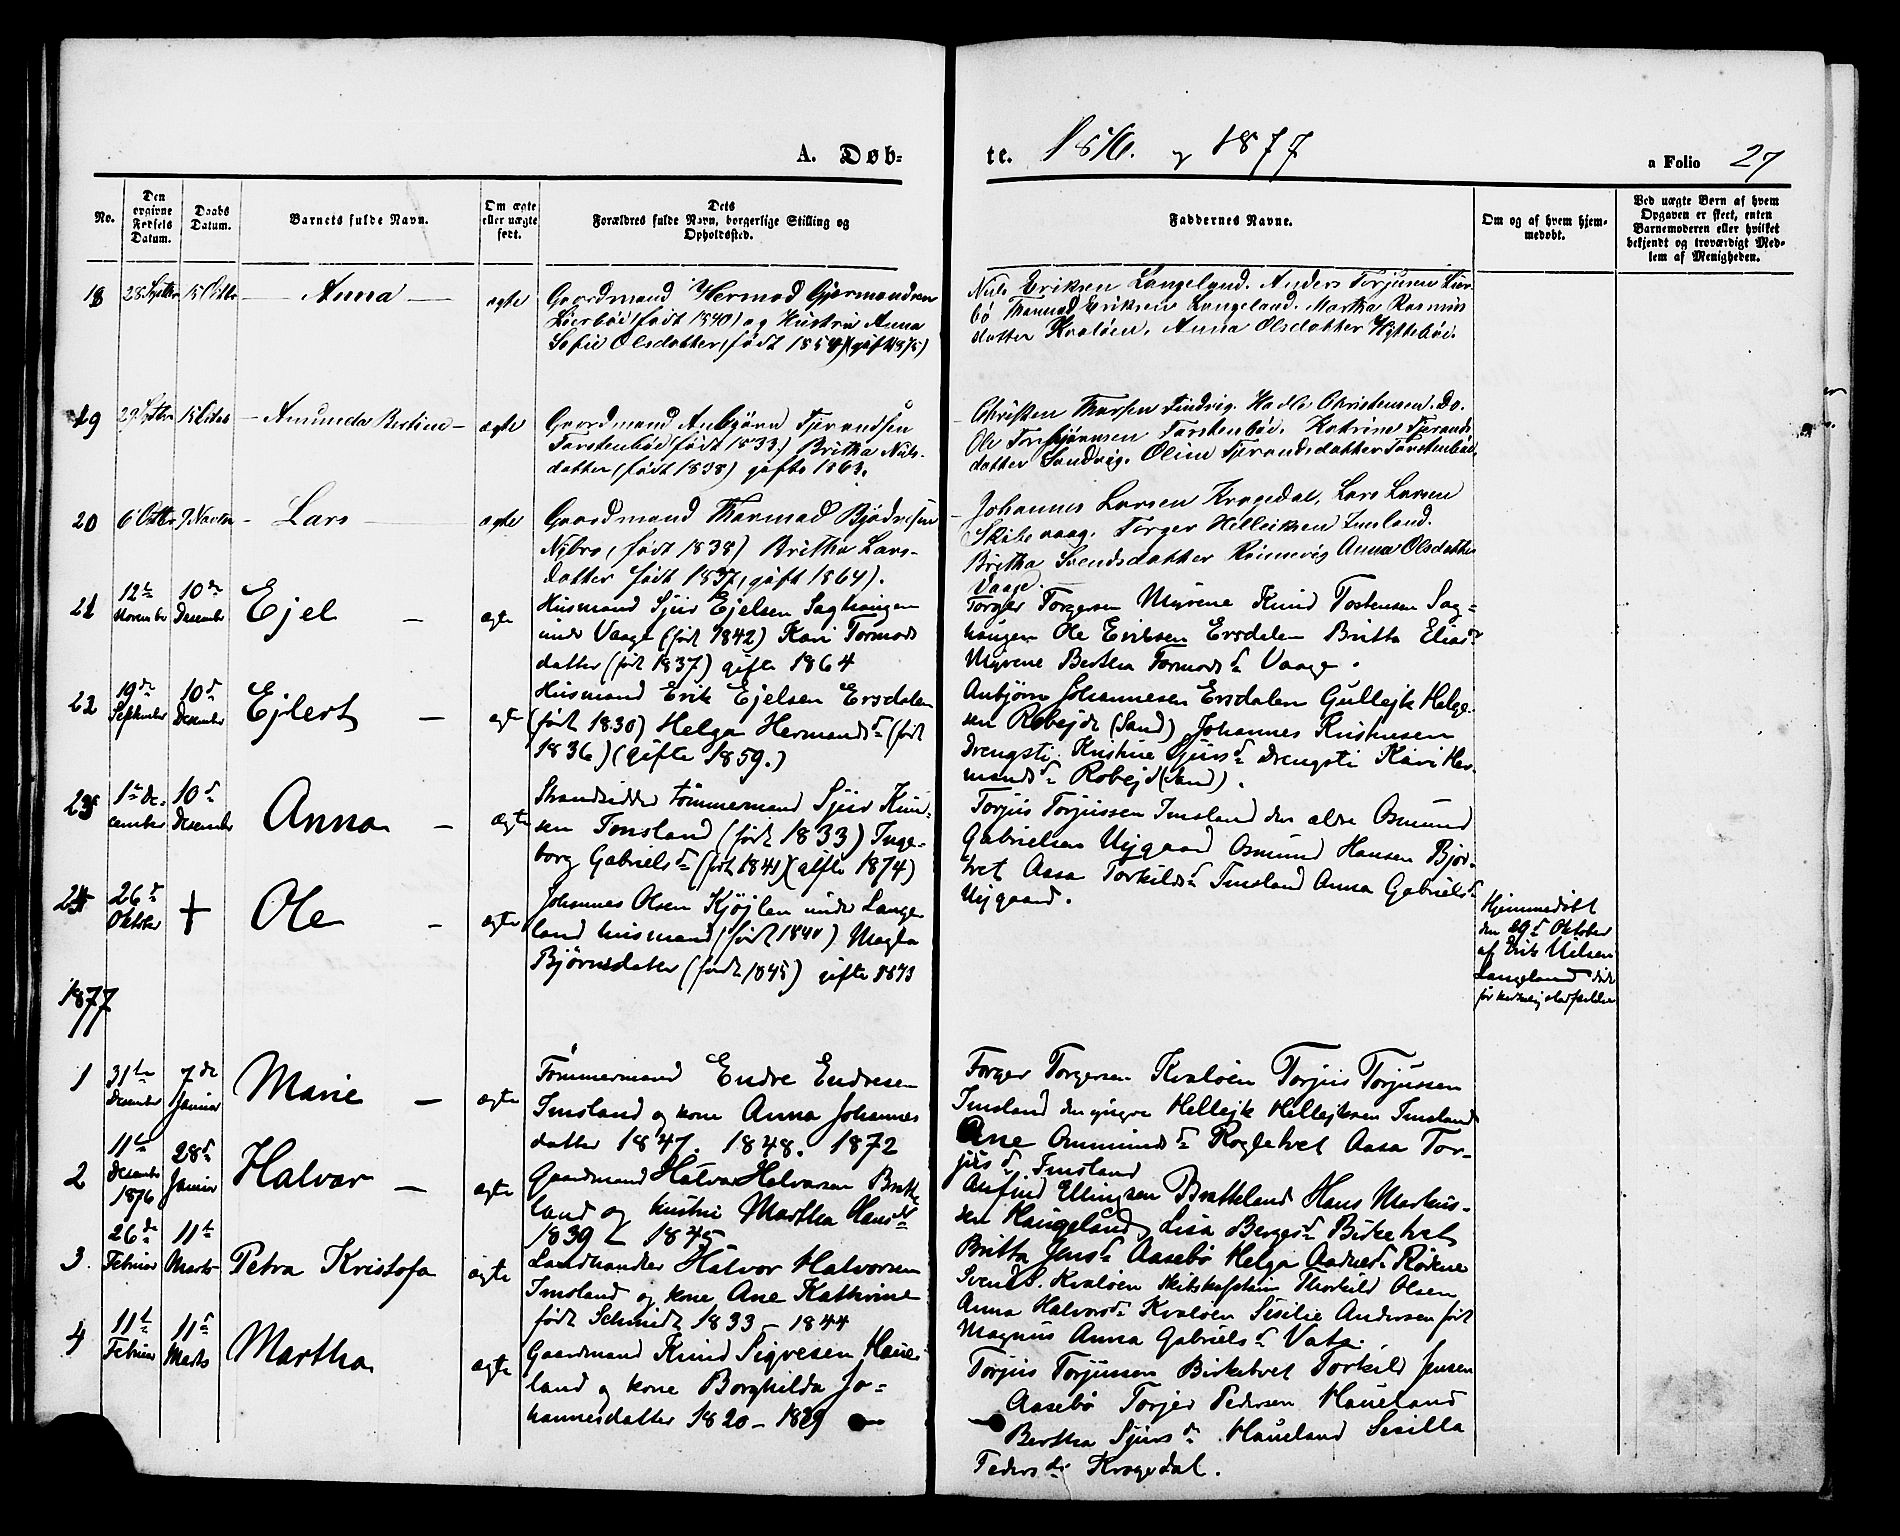 A. Døb-
te. 1876. og 1877
a Folio 27
No.
Den
opgivne
Fødsels
Datum.
Daabs
Datum.
Barnets fulde Navn.
Om ægte
eller uægte
født.
Dets
Forældres fulde Navn, borgerlige Stilling og
Opholdssted.
Faddernes Navne.
Om og af hvem hjem-
medøbt.
Ved uægte Børn af hvem
Opgaven er skeet, enten
Barnemoderen eller hvilket
bekjendt og troværdigt Med-
lem af Menigheden.
18 28 Septbr 15 Octbr Anna ægte
Gaardmand Hermod Gjermandsen
(født 1840) og Hustru Anna
Sofie Olsdatter (født 1854) (gift 1875)
Nils Eriksen Langeland. Anders Torjusen Lier-
bø Thormod Eriksen Langeland. Martha Rasmus
datter Kvaløen. Anna Olsdatter Hyttebøe.
19 29 Septbr 15 Octob Amunda Bertine ægte
Gaardmand Anbjørn Tjerandsen
Torstenbøe (født 1833) Britha Nils-
datter (født 1838) gifte 1863.
Christen Thorsen Tindvig. Hadle Christensen. Do.
Ole Torbjørnsen Torstenbøe. Katrine Tjerands
datter Sandvig. Oline Tjerandsdatter Torstenbøe.
20 6 Octbr 9 Novbr Lars ægte
Gaardmand Thormod Bjødnesen
Nybro, (født 1838) Britha Lars-
datter født 1837, gift 1864).
Johannes Larsen Krogedal, Lars Larsen
Skibevaag. Torger Helleiksen Imsland.
Britha Svendsdatter Rønnevig Anna Olsdatter
Vaage.
21 12te November 10de Desember Ejel – ægte
Husmand Sjur Ejelsen Saghaugen
under Vaage (født 1842) Kari Tormods
datter (født 1837) gifte 1864
Torger Torgersen Myrene Knud Tostensen Sag-
haugen Ole Eriksen Ersdalen Britta Eliasd
Myrene Bertha Tormodsd Vaage.
22 19de September 10d Desember Ejlert – ægte
Husmand Erik Ejelsen Ersdalen
(født 1830) Helga Hermandsd (født
1836) (gifte 1859.)
Anbjørn Johannesen Ersdalen Gullejk Helge
sen Robejde (Sand) Johannes Knutsen
Drengsti Kristine Sjursd Drengsti Kari Her-
mandsd Robejd (Sand).
23 1ste De-
cember 10d Desember Anna – ægte
Strandsidder tømmermand Sjur Knu-
sen Imsland (født 1833) Inge-
borg Gabrielsd (født 1841) (gifte 1874)
Torjus Torjussen Imsland den ældre Osmund
Gabrielsen Nygaard Osmund Hansen Bjør-
tvet Aasa Torkildsd Imsland Anna Gabrielsd
Nygaard.
24 26d Oktober + Ole – ægte
Johannes Olsen Kjøjlen under Lange
land husmand (født 1840) Magla
Bjørnsdater (født 1845) gifte 1873
Hjemmedøbt
den 29d Oktober
af Erik Nilsen
Langeland
1877
1 31te Desember 7de Januar Marie – ægte
Tømmermand Endre Endresen
Imsland og kone Anna Johannes
datter 1847. 1848. 1872
Torger Torgersen Kvaløen Torjus Torjussen
Imsland den yngre Hellejk Hellejksen Imsland
Ane Osmundsd Rogletvet Aasa Tor-
jusd Imsland
2 11te Desember
1876 28d Januar Halvar – ægte
Gaardmand Halvar Halvorsen Bratte
land og hustru Martha Hansd
1839 – 1845
Anfind Ellingsen Bratteland Hans Markus-
sen Haugeland Lisa Bergesd Birketvet
Britta Jensd Aasebø Helga Aadned Rødene
3. 26de Februar 11te Marts Petra Kristofa ægte
Landhandler Halvor Halvorsen
Imsland og kone Ane Kathrine
født Schmidt 1833 – 1844
Svend S. Kvaløen skibskaptain Thorkild Olsen
Anna Halvorsd Kvaløen Sisilie Andersen født
Magnus Anna Gabrielsd Vats.
4 11te Februar 11te Marts Martha ægte
Gaardmand Knud Sigvesen Haue-
land og kone Borghilda Jo-
hannesdatter 1820 – 1829
Torjus Torjussen Birketvet Torkild Jensen
Aasebø Torjer Pedersen Haueland
Bertha Sjursd Haueland Sisilla
Pedersd Krogedal.